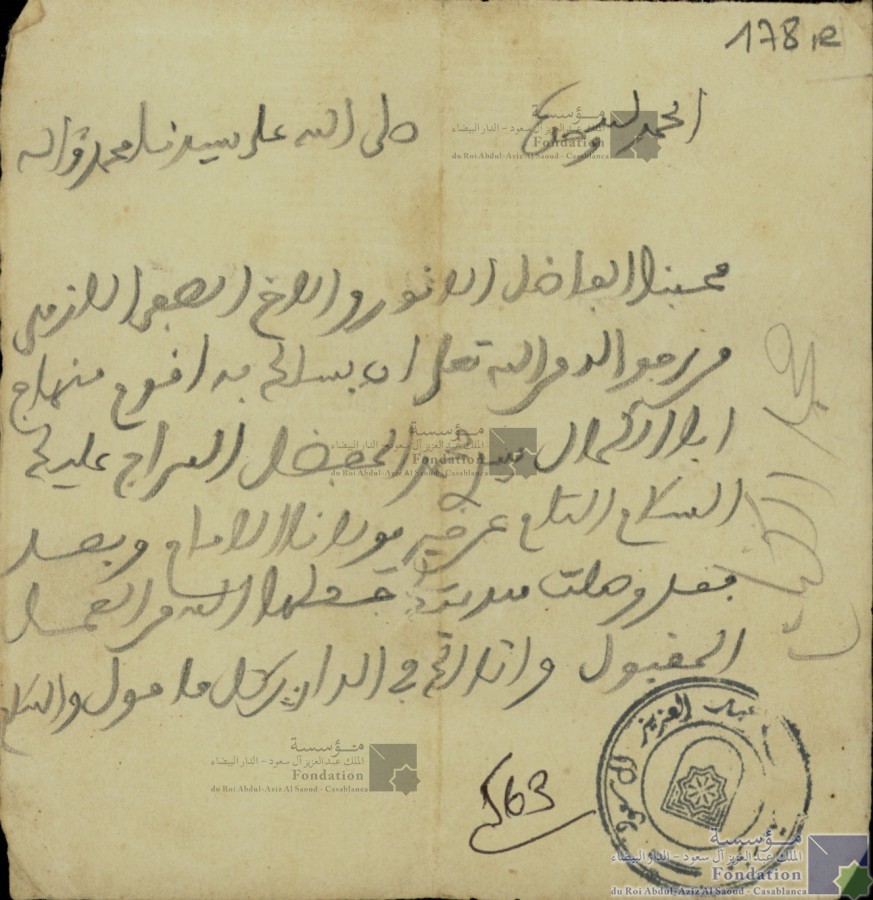 178 R
الحمد لله وحده
صلى الله على سيدنا محمد وآله
محبنا الفاضل الانور والاخ الصفي الازهر
من نرجوا الله تعلى ان يسلك به اقوم منهاج
المفضل السراج عليكم
السلام التام عن خير مولانا الامام وبعد
فقد وصلت هديتك جعلها الله من العمل
المقبول وانالكم في الدارين كل مامول والسلام
563
عبد العزيز آل سعود
مؤسسة
الملك عبد العزيز آل سعود - الدار البيضاء
Fondation
du Roi Abdul-Aziz Al Saoud - Casablanca
مؤسسة
الملك عبد العزيز آل سعود - الدار البيضاء
Fondation
du Roi Abdul-Aziz Al Saoud - Casablanca
مؤسسة
الملك عبد العزيز آل سعود - الدار البيضاء
Fondation
du Roi Abdul-Aziz Al Saoud - Casablanca
مؤسسة
الملك عبد العزيز آل سعود - الدار البيضاء
Fondation
du Roi Abdul-Aziz Al Saoud - Casablanca